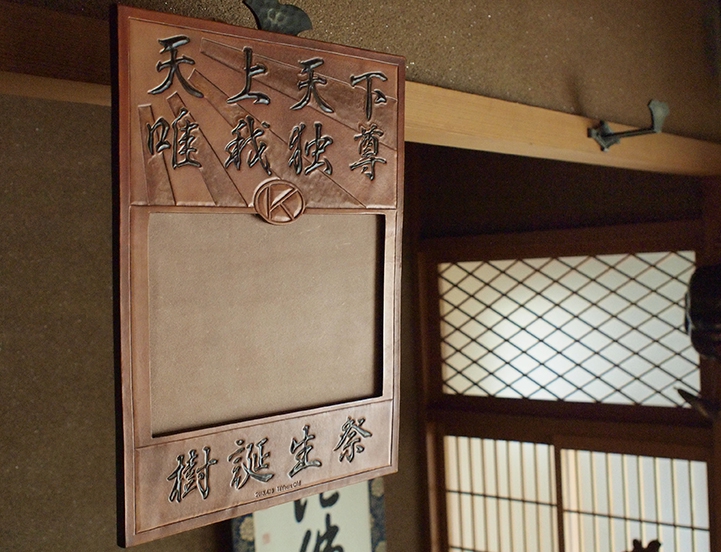 天上天下
唯我独尊
K
樹誕生祭